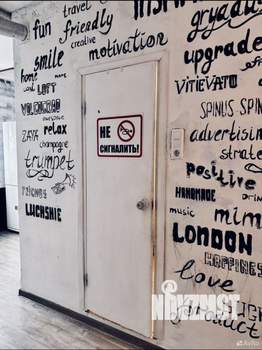 fun
travel
friendly
creative
motivation
smile
home
and
LOFT
VOLGOGRAD
ZAYA
relax
champagne
trumpet
FRIENDS
LUCHSHIE
НЕ
СИГНАЛИТЬ!
gryadu
upgrade
VITIEVATO
SPINUS SPIN
advertising
strate
positive
HANDMADE
drink
music
mim
LONDON
HAPPINES
love
product
NOVIZHST
Avito